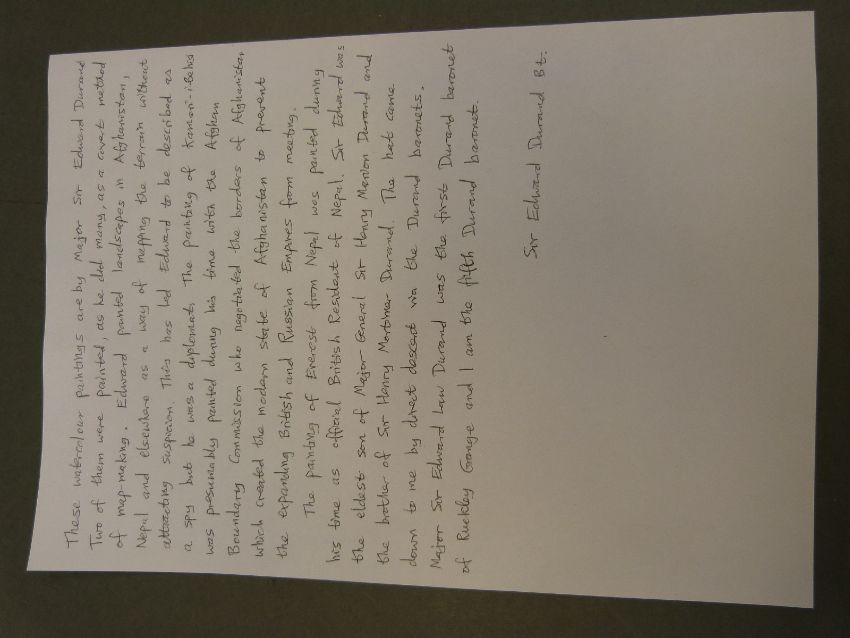 These watercolour paintings are by Major Sir Edward Durand
Two of them were painted, as he did many, as a covert method
of map-making. Edward painted landscapes in Afghanistan,
Nepal and elsewhere as a way of mapping the terrain without
attracting suspicion. This has led Edward to be described as
a spy but he was a diplomat. The painting of
was presumably painted during his time with the Afghan
Boundary Commission who negotiated the borders of Afghanistan,
which created the modern state of Afghanistan to prevent
the expanding British and Russian Empires from meeting.
The painting of Everest from Nepal was painted during
his time as official British Resident of Nepal. Sir Edward was
the eldest son of Major-General Sir Henry Marion Durand and
the brother of Sir Henry Mortimer Durand. The hat came
down to me by direct descent via the Durand baronets.
Major Sir Edward Law Durand was the first Durand baronet
of Ruckley Grange and I am the fifth Durand baronet.
Sir Edward Durand Bt.